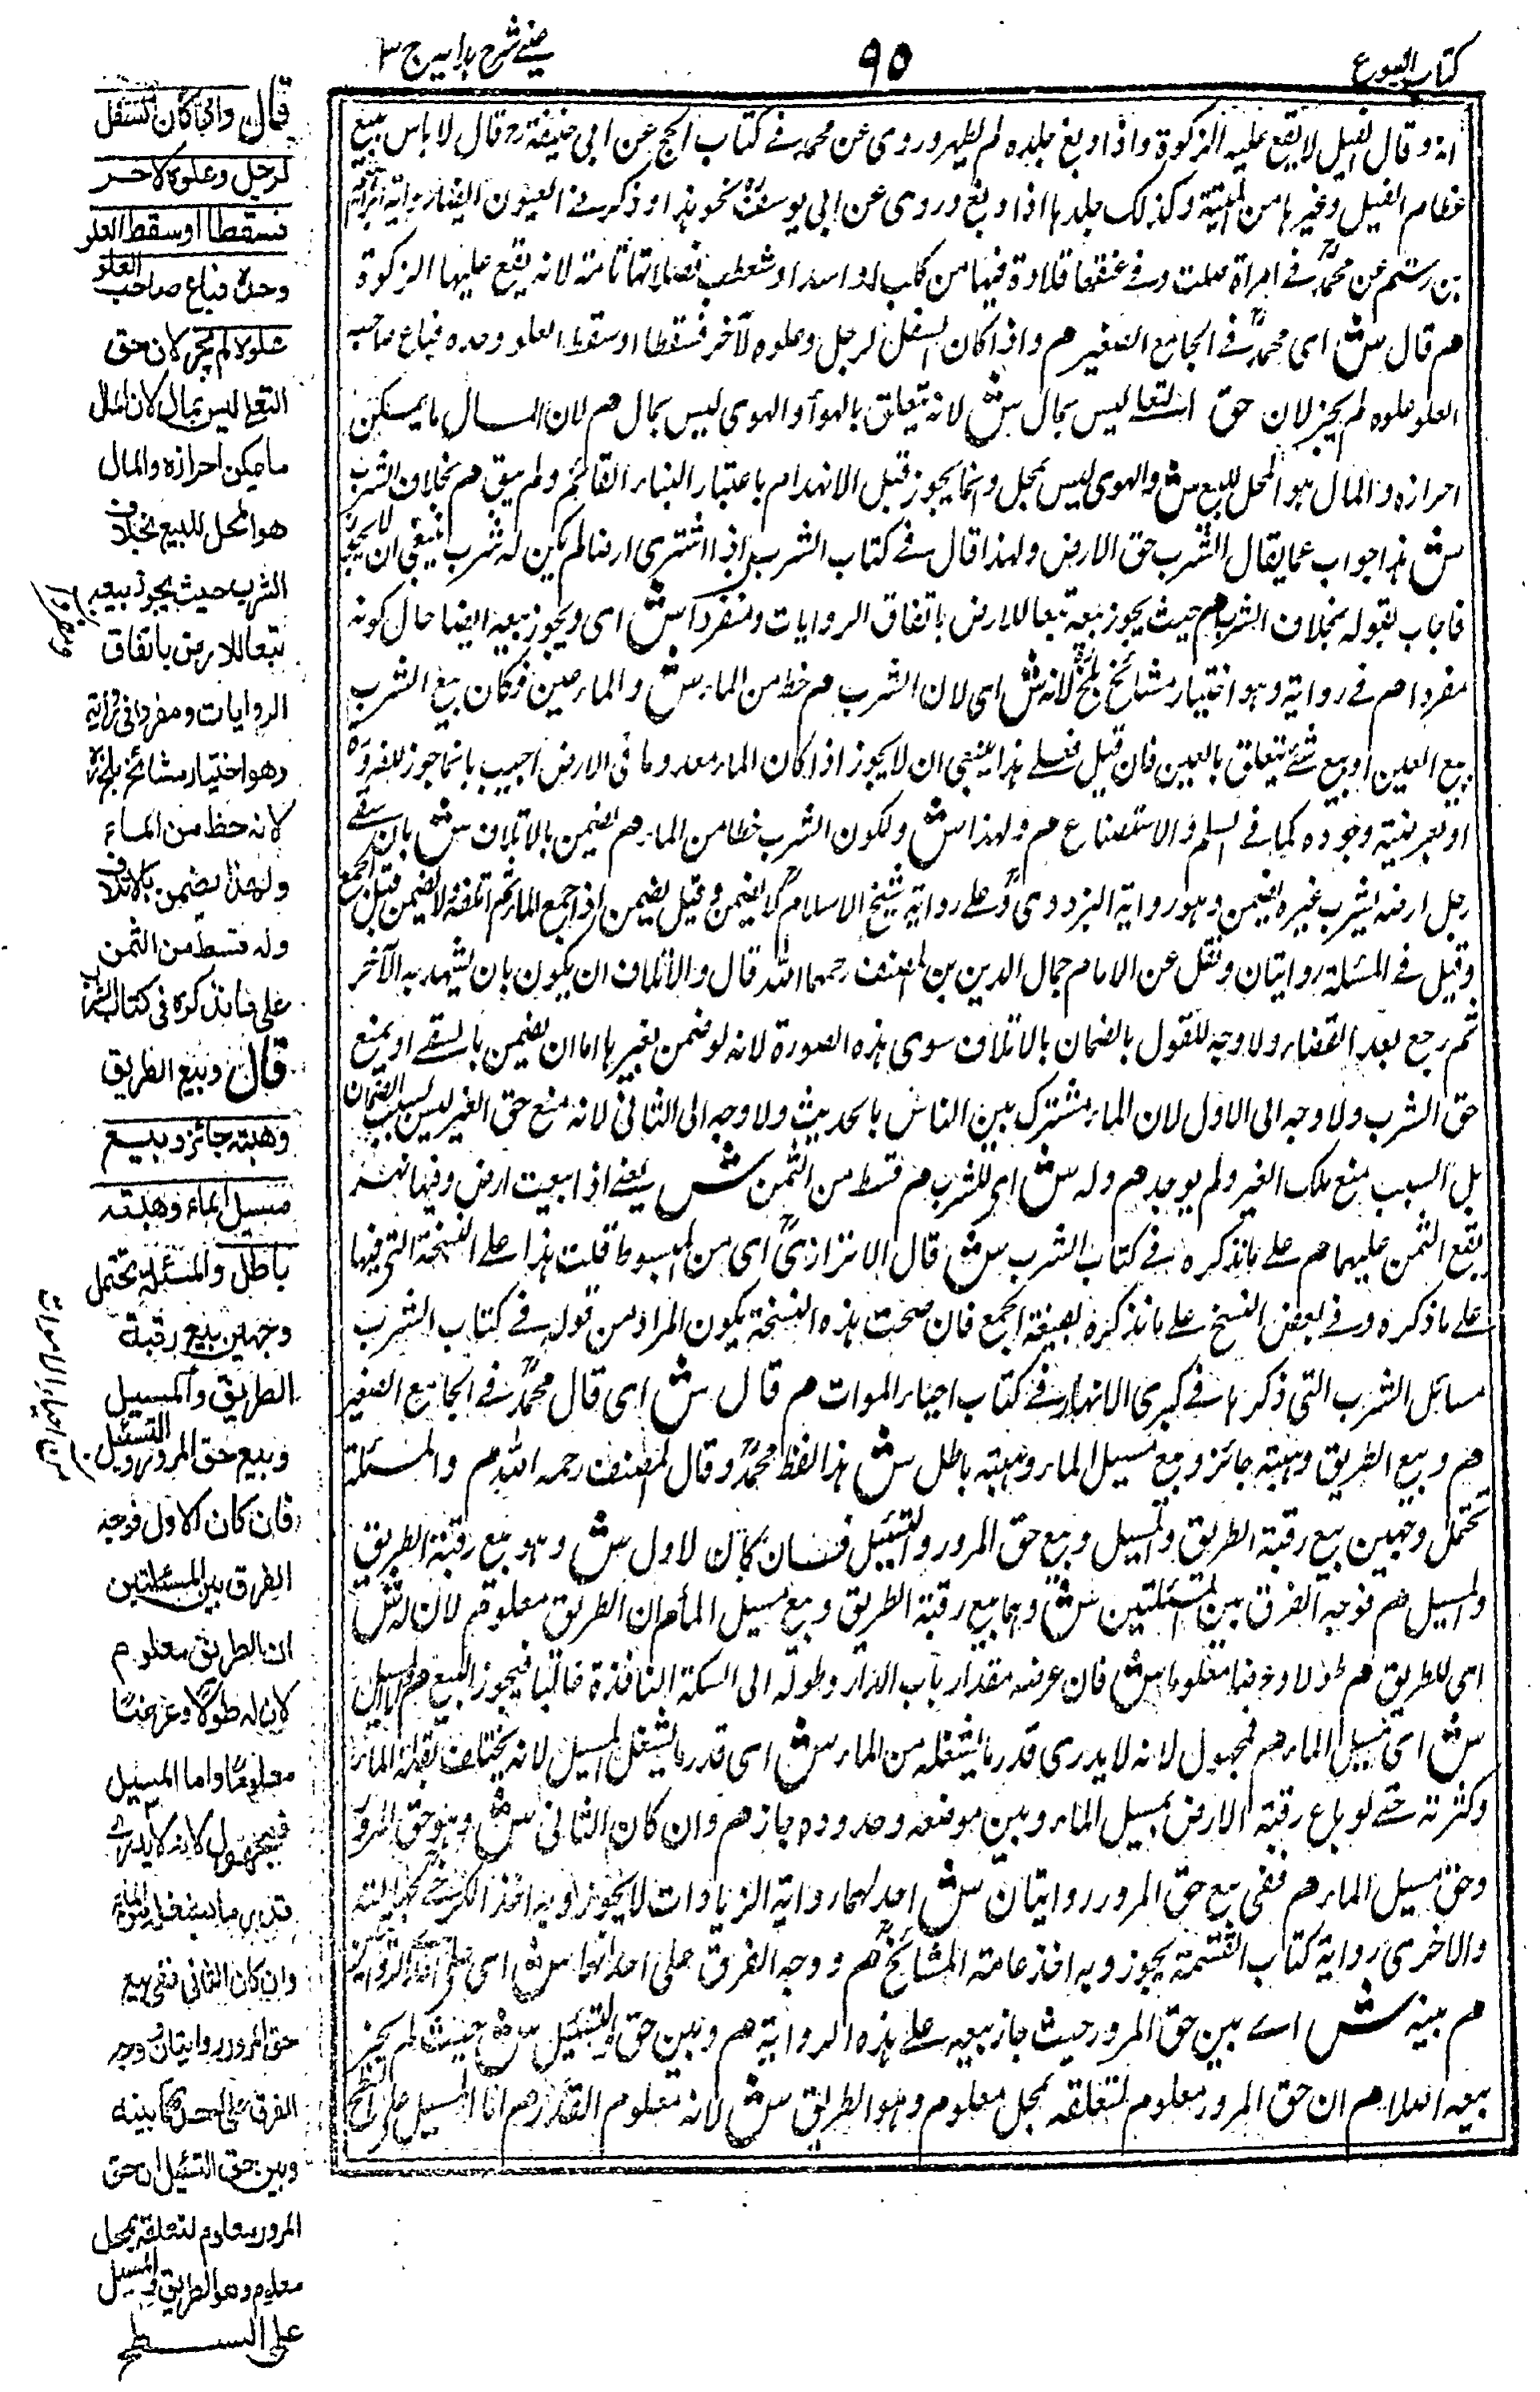 كتاب البيوع
٩٥
عينى شرح هدايه ج ٣
انه وقال الفيل لا يقع عليه الزكوة واذا دبغ جلده لم يطهر وروى عن محمد فى كتاب الحج عن ابى حنيفة رح قال لا باس ببيع
عظام الفيل وغيرها من الميتة وكذلك جلدها اذا دبغ وروى عن ابى يوسف نحو هذا وذكر فى العيون ايضا رواية ابراهيم
بن رستم عن محمد فى امراة صلت وفى عنقها قلادة فيها من كلب او اسد او ثعلب فصلاتها تامة لانه يقع عليها الزكوة
هم قال ش اى محمد فى الجامع الصغير هم واذا كان السفل لرجل وعلوه لآخر فسقطا او سقط العلو وحده فباع صاحب
العلو علوه لم يجز لان حق التعلى ليس بمال ش لانه يتعلق بالهواء والهوى ليس بمال هم لان المال ما يمكن
احرازه والمال هو المحل للبيع ش والهوى ليس بمحل وانما يجوز قبل الانهدام باعتبار البناء القائم ولم يبق هم بخلاف الشرب
ش هذا جواب عما يقال الشرب حق الارض ولهذا قال فى كتاب الشرب اذا اشترى ارضا لم يكن له شرب ينبغى ان لا يجوز
فاجاب بقوله بخلاف الشرب هم حيث يجوز بيعه تبعا للارض باتفاق الروايات ومنفردا ش اى ويجوز بيعه ايضا حال كونه
مفردا هم فى رواية وهو اختيار مشائخ بلخ لانه ش اى لان الشرب هم حظ من الماء ش والماء عين فكان بيع الشرب
بيع العين او بيع شئ يتعلق بالعين فان قيل فعلى هذا ينبغى ان لا يجوز اذا كان الماء معدوما فى الارض اجيب بانما جوز للضرورة
او بعرضية وجوده كما فى السلم والاستصناع هم ولهذا ش ولكون الشرب حظا من الماء هم يضمن بالاتلاف ش بان سقى
رجل ارضه بشرب غيره يضمن وهو رواية البزدوى وعلى رواية شيخ الاسلام لا يضمن وقيل يضمن اذا جمع الماء ثم اتلفه لا يضمن قبل الجمع
وقيل فى المسئلة روايتان ونقل عن الامام جمال الدين بن المصنف رحمهما الله قال والاتلاف ان يكون بان يشهد به لآخر
ثم رجع بعد القضاء ولا وجه للقول بالضمان بالاتلاف سوى هذه الصورة لانه لو ضمن بغيرها اما ان يضمن بالسقى او بمنع
حق الشرب ولا وجه الى الاول لان الماء مشترك بين الناس بالحديث ولا وجه الى الثانى لانه منع حق الغير ليس بسبب الضمان
بل السبب منع ملك الغير ولم يوجد هم وله ش اى للشرب هم قسط من الثمن ش يعنى اذا بيعت ارض وفيها نهر
يقع الثمن عليهما هم على ما نذكره فى كتاب الشرب ش قال الاترازى اى من المبسوط قلت هذا على النسخة التى فيها
على ما ذكره وفى بعض النسخ على ما نذكره بصيغة الجمع فان صحت هذه النسخة يكون المراد من قوله فى كتاب الشرب
مسائل الشرب التى ذكرها فى كبرى الانهار فى كتاب احياء الموات هم قال ش اى قال محمد فى الجامع الصغير
هم وبيع الطريق وهبته جائز وبيع مسيل الماء وهبته باطل ش هذا لفظ محمد وقال المصنف رحمه الله هم والمسئلة
تحتمل وجهين بيع رقبة الطريق والمسيل وبيع حق المرور والتسييل فان كان الاول ش وهو بيع رقبة الطريق
والمسيل هم فوجه الفرق بين المسئلتين ش وهما بيع رقبة الطريق وبيع مسيل الماء هم ان الطريق معلوم هم لان له ش
اى للطريق هم طولا وعرضا معلوما ش فان عرضه مقدار باب الدار وطوله الى السكة النافذة غالبا فيجوز البيع هم واما المسيل
ش اى مسيل الماء هم فمجهول لانه لا يدرى قدر ما يشغله من الماء ش اى قدر ما يشغل المسيل لانه يختلف بقلة الماء
وكثرته حتى لو باع رقبة الارض بمسيل الماء وبين موضعه وحدوده جاز هم وان كان الثانى ش وهو حق المرور
وحق مسيل الماء هم ففى بيع حق المرور روايتان ش احدهما رواية الزيادات لا يجوز وبه اخذ الكرخى
والاخرى رواية كتاب القسمة يجوز وبه اخذ عامة المشائخ هم ووجه الفرق على احداهما ش اى على احدى الروايتين
هم بينه ش اى بين حق المرور حيث جاز بيعه على هذه الرواية هم وبين حق التسييل ش حيث لم يجز
بيعه اصلا هم ان حق المرور معلوم لتعلقه بمحل معلوم وهو الطريق ش لانه معلوم القدر هم اما المسيل على السطح
قال واذا كان السفل
لرجل وعلوه لآخر
فسقطا او سقط العلو
وحده فباع صاحب العلو
علوه لم يجز لان حق
التعلى ليس بمال لان المال
ما يمكن احرازه والمال
هو المحل للبيع بخلاف
الشرب حيث يجوز بيعه
تبعا للارض باتفاق
الروايات ومفردا فى رواية
وهو اختيار مشائخ بلخ
لانه حظ من الماء
ولهذا يضمن بالاتلاف
وله قسط من الثمن
على ما نذكره فى كتاب الشرب
قال وبيع الطريق
وهبته جائز وبيع
مسيل الماء وهبته
باطل والمسئلة تحتمل
وجهين بيع رقبة
الطريق والمسيل
وبيع حق المرور والتسييل
فان كان الاول فوجه
الفرق بين المسئلتين
ان الطريق معلوم
لان له طولا وعرضا
معلوما واما المسيل
فمجهول لانه لا يدرى
قدر ما يشغله من الماء
وان كان الثانى ففى بيع
حق المرور روايتان ووجه
الفرق على احداهما بينه
وبين حق التسييل ان حق
المرور معلوم لتعلقه بمحل
معلوم وهو الطريق اما المسيل
على السطح